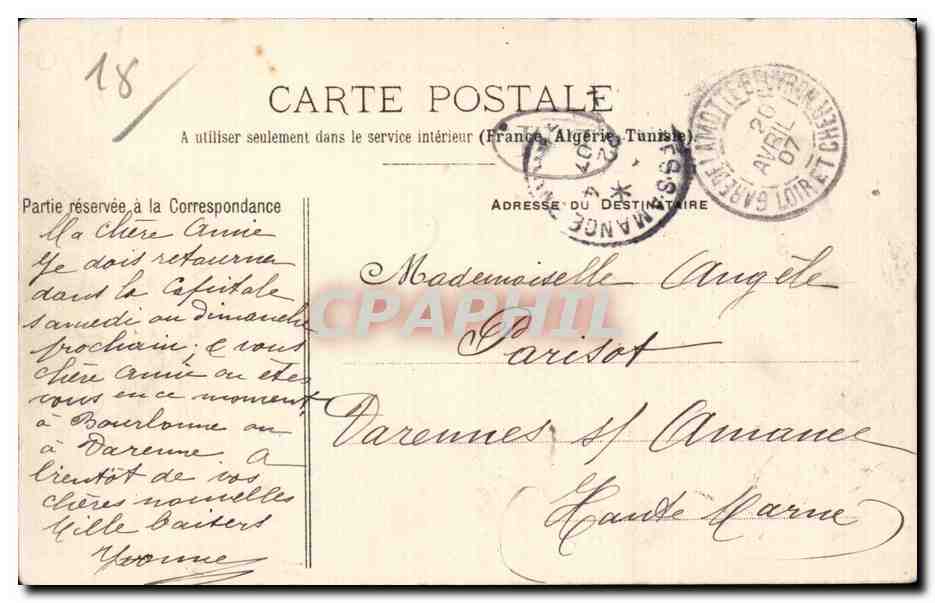 18
CARTE POSTALE
A utiliser seulement dans le service intérieur (France, Algérie, Tunisie).
GARE DE LAMOTTE BEUVRON
20
AVRIL
07
LOIR ET CHER
Partie réservée à la Correspondance
ADRESSE DU DESTINATAIRE
Ma chère Amie
Je dois retourner
dans la Capitale
samedi ou dimanche
prochain; & vous
chère Amie ou êtes
vous en ce moment
à Bourbonne ou
à Varenne A
bientôt de vos
chères nouvelles
Mille baisers
Yvonne
Mademoiselle Angèle
Parisot
Varennes s/ Amance
(Haute Marne)
CPAPHIL